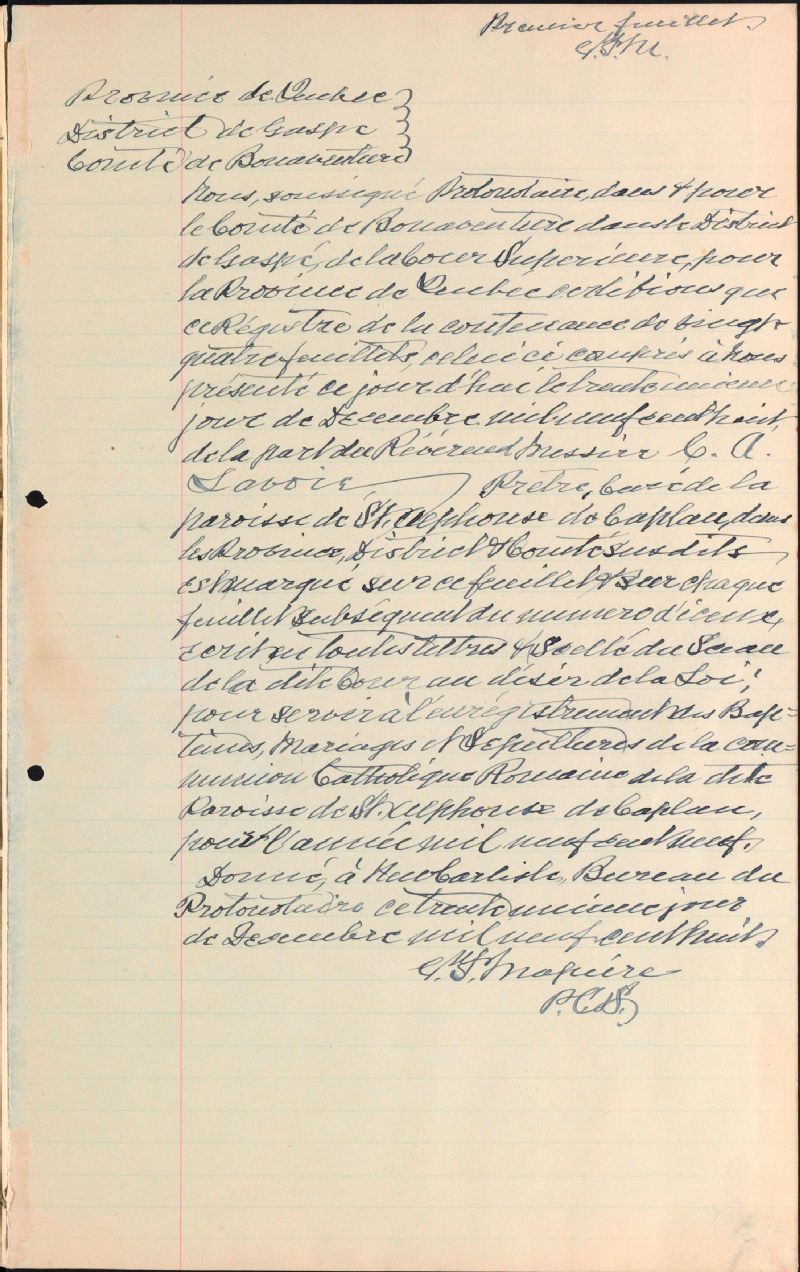 Premier feuillet.
Province de Quebec
District de Gaspe
Comté de Bonaventure
Nous, soussigné Protonotaire, dans & pour
le Comté de Bonaventure dans le District
de Gaspé, de la Cour Supérieure, pour
la Province de Quebec certifions que
ce Régistre de la contenance de vingt
quatre feuillets, celui ci compris à nous
présenté ce jour d'hui le trente unieme
jour de Decembre mil neuf cent huit,
de la part du Révérend Messire C. A.
Lavoie, Prêtre, Curé de la
paroisse de St. Alphonse de Caplan, dans
les Province, District & Comté sus dits
est marqué sur ce feuillet & sur chaque
feuillet subséquent du numero d'iceux,
ecrit en toutes lettres & scellé du Sceau
de la dite Cour au désir de la Loi;
pour servir à l'enrégistrement des Bap-
temes, Mariages et Sepultures de la com-
munion Catholique Romaine de la dite
Paroisse de St. Alphonse de Caplan,
pour l'année mil neuf cent neuf.
Donné, à New Carlisle, Bureau du
Protonotaire ce trente unieme jour
de Decembre mil neuf cent huit.
Maguire
P.C.S.